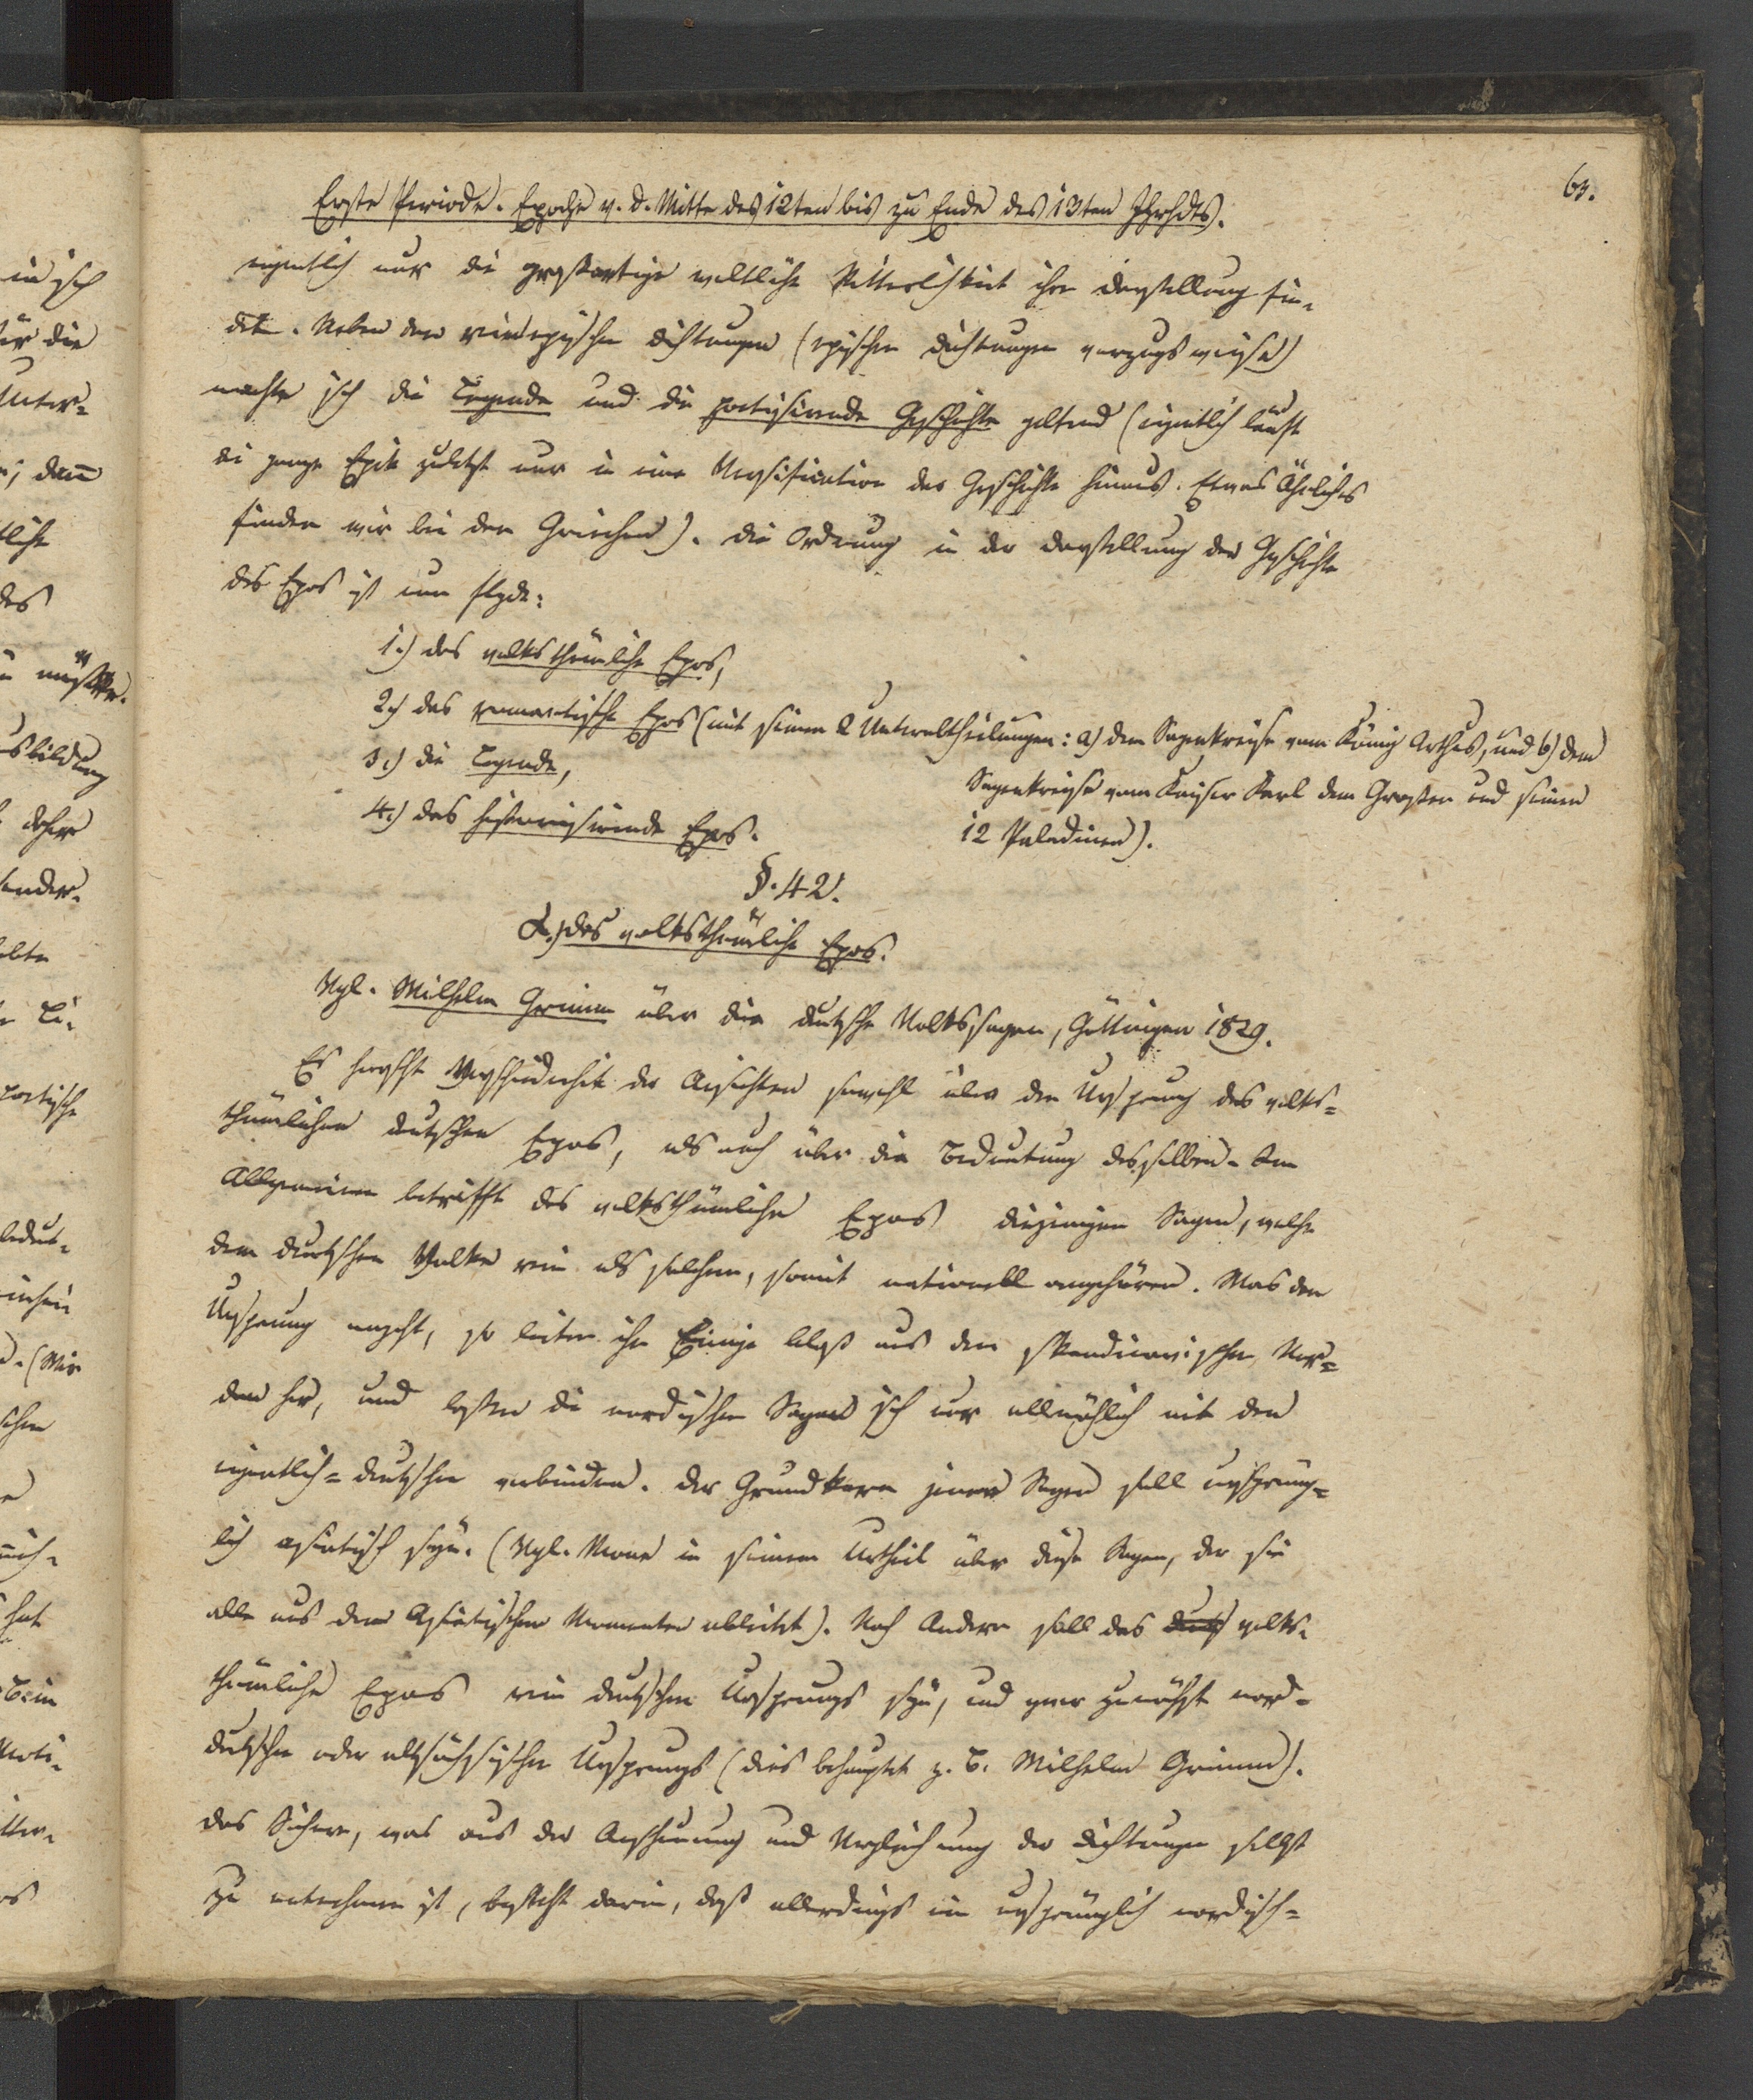 63.
Erste Periode. Epoche v. d. Mitte des 12ten bis zu Ende des 13ten Jhrhdts.
eigentlich nur die großartige weltliche Ritterlichkeit ihre Darstellung fin-
det. Neben den reinepischen Dichtungen (epischen Dichtungen vorzugsweise)
machte sich die Legende und die poetisirende Geschichte geltend (eigentlich läuft
die ganze Epik zuletzt nur in eine Versification der Geschichte hinaus. Etwas Ähnliches
finden wir bei den Griechen). Die Ordnung in der Darstellung der Geschichte
des Epos ist nun flgde:
1.) das volksthümliche Epos,
2.) das romantische Epos (mit seinen 2 Unterabtheilungen: a) dem Sagenkreise vom König Arthus, und b) dem
Sagenkreise vom Kaiser Karl dem Großen und seinen
12 Paladinen).
3.) die Legende,
4.) das historisirende Epos.
§. 42.
α.) das volksthümliche Epos.
Vgl. Wilhelm Grimm über die deutsche Volkssagen, Göttingen 1829.
Es herrscht Verschiedenheit der Ansichten sowohl über den Ursprung des volks=
thümlichen deutschen Epos, als auch über die Bedeutung desselben. Im
Allgemeinen betrifft das volksthümliche Epos diejenigen Sagen, welche
dem deutschen Volke rein als solchem, somit nationell angehören. Was den
Ursprung angeht, so leiten ihn Einige bloß aus dem skandinavischen Nor=
den her, und laßen die nordischen Sagen sich nur allmählich mit den
eigentlich=deutschen verbinden. Der Grundkern jener Sagen soll ursprüng=
lich asiatisch seyn. (Vgl. Mone in seinem Urtheil über diese Sagen, der sie
alle aus den Asiatischen Momenten ableitet). Nach Andern soll das deuts volks-
thümliche Epos rein deutschen Ursprungs seyn, und zwar zunächst nord-
deutschen oder altsächsischen Ursprungs (dies behauptet z. B. Wilhelm Grimm).
Das Sichere, was aus der Anschauung und Vergleichung der Dichtungen selbst
zu entnehmen ist, besteht darin, daß allerdings ein ursprünglich nordisch=